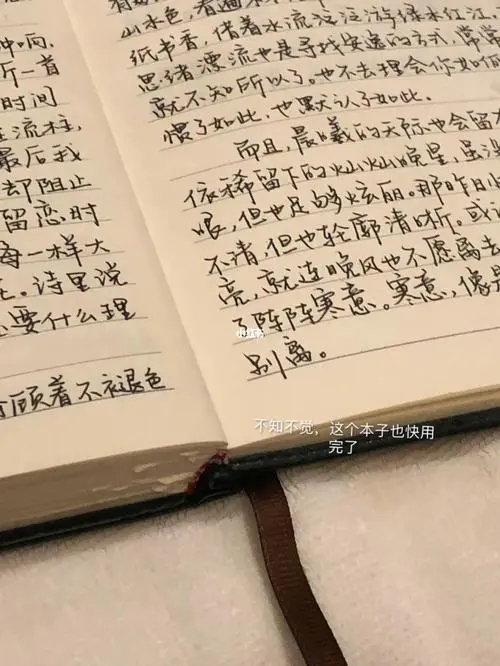 冲向,
听一首
时间
流柱,
最后我
却阻止
留恋时
每一样大
诗里说
要什么理
顾着不褪色
山水色,看遍
纸书香,借着水流泛泛游绿水红江,
思绪漂流也是寻找安逸的方式,常常
就不知所以了。也不去理会你如何
惯了如此,也默认了如此。
而且,晨曦的天际也会留
依稀留下的灿灿晚星,虽没
眼,但也足够炫丽。那昨日
不清,但也轮廓清晰。或
亮,就连晚风也不愿离去
了阵阵寒意。寒意,像
别离。
小红书
不知不觉,这个本子也快用
完了